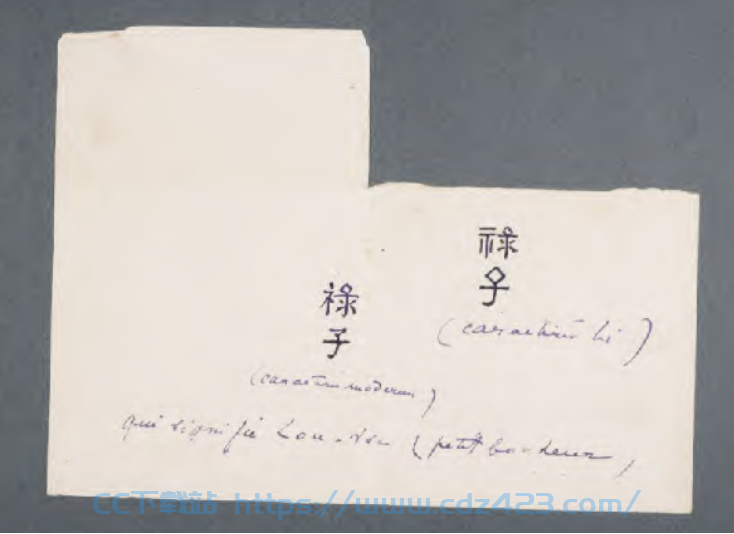 祿
子
(caractères li)
祿
子
(caractères modernes)
qui signifie Lou-tse (petit bonheur)
CC下载站 https://www.cdz423.com/